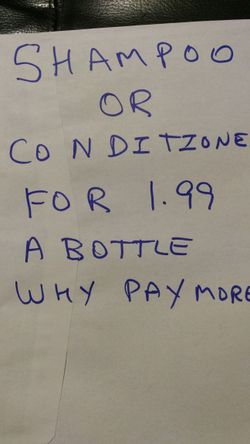 SHAMPOO
OR
CONDITIONE
FOR 1.99
A BOTTLE
WHY PAY MORE